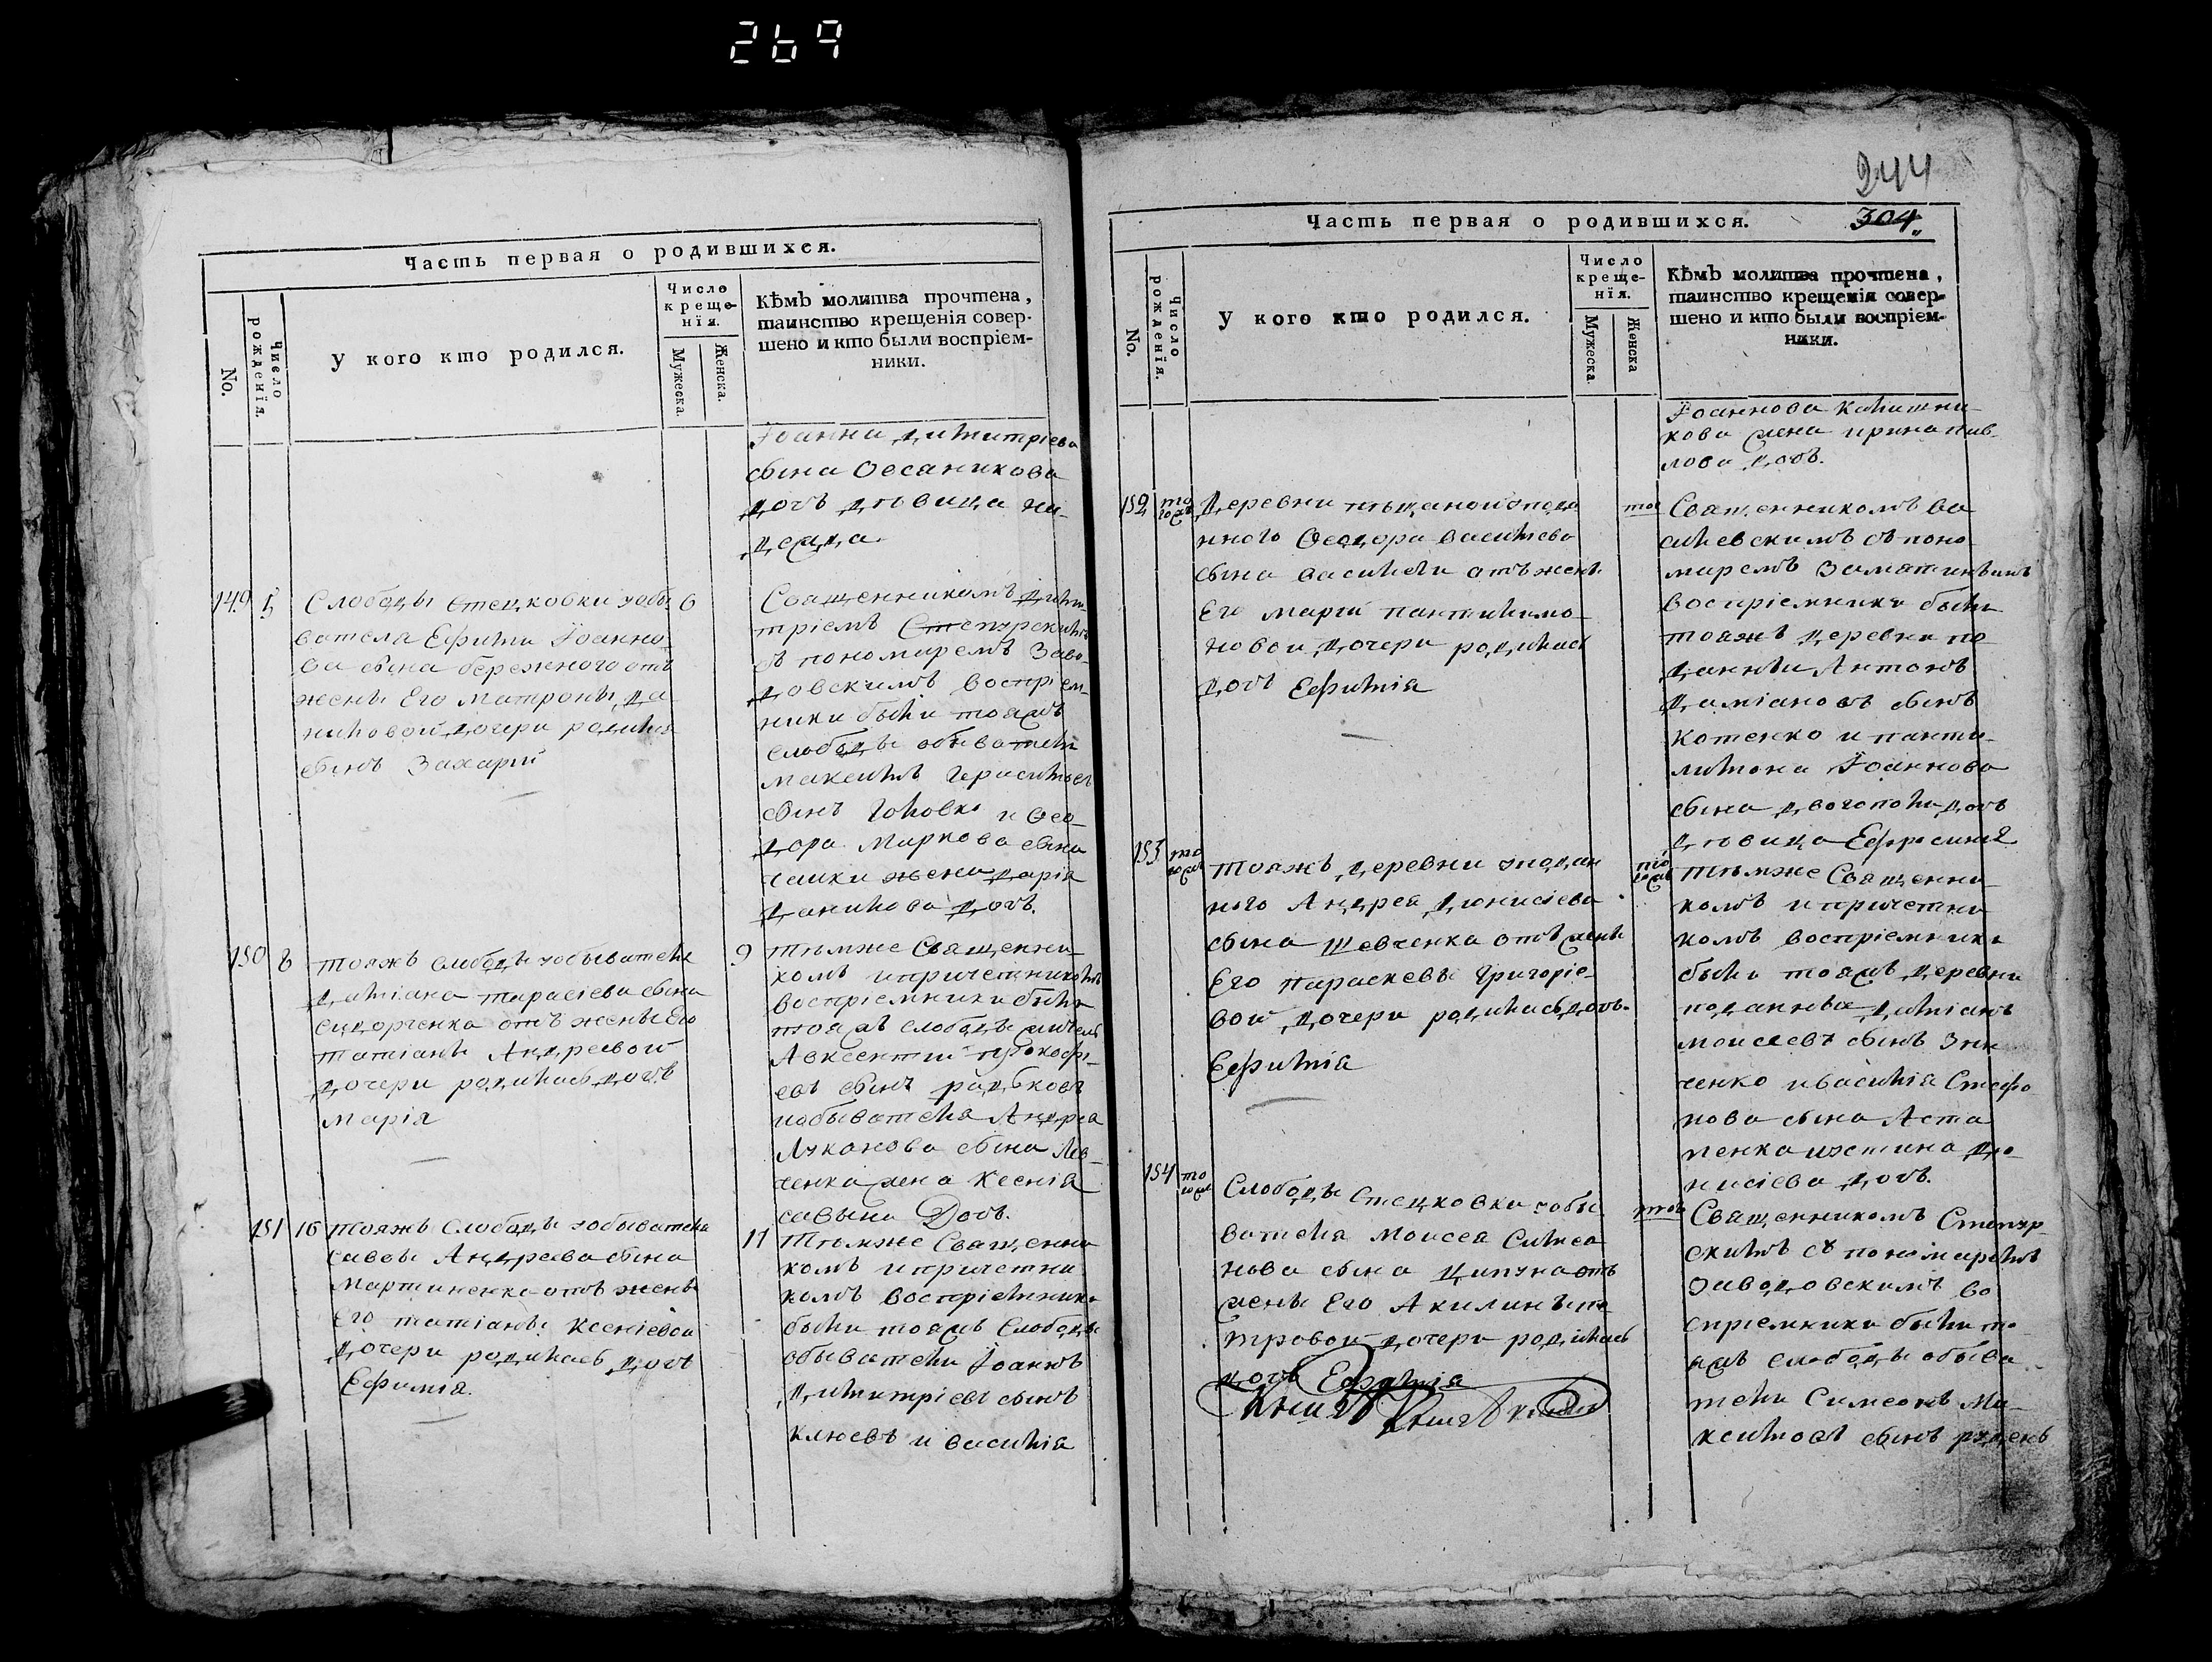 269
Часть первая о родившихся.
No.
Число рожденїя.
У кого кто родился.
Число креще-
нїя.
Мужеска.
Женска.
КѢмЪ молитва прочтена,
таинство крещенія совер-
шено и кто были воспріем-
ники.
Іоанна Димитріева
сына
дочь дѣвица
149 5 Слободы Стецковки уобы 6
вателя Ефима Іоанно-
ва сына бережного отъ
жены Его Матроны Да
ниловой дочери родился
сынъ Захарій
Священникомъ Дими-
тріемъ Степурскимъ
съ пономаремъ Заво-
довскимъ воспріем-
ники были тояжъ
слободы обыватели
Максимъ Герасимовъ
сынъ Головко и Ѳео-
дора Маркова сына
жена дарія
Данилова дочь.
150 8 тояжъ слободы уобывателя 9
Даміана тарасіева сына
сидорченка отъ жены Его
татіаны Андреевой
дочери родилась дочь
марія
тѣмже Священни-
комъ ипричетникомъ
воспріемники были
тояжъ слободы
Авксентій прокофі-
евъ сынъ радьковъ
иобывателя Андрея
Лукьянова сына Лев-
ченка жена Ксенія
савына Дочь.
151 16 тояжъ Слободы уобывателя 17
саввы Андреева сына
Мартиненка отъ жены
Его татіаны Ксеніевой
дочери родилась дочь
Ефимія.
Тѣмже Священни
комъ ипричетни
комъ воспріемники
были тояжъ Слободы
обыватели Іоаннъ
Димитріевъ сынъ
Клюевъ и василія
244
304
Часть первая о родившихся.
No.
Число рожденїя.
У кого кто родился.
Число креще-
нїя.
Мужеска.
Женска
КѢмЪ молитва прочтена,
таинство крещенія совер-
шено и кто были воспріем-
ники.
Іоаннова Калашни-
кова жена ирина пав-
лова дочь.
152 тогожъ Деревни пѣщаной уподан
ного Ѳеодора василіева
сына василеги отъ жены
Его маріи пантилимо-
новой дочери родилась
дочь Ефимія
Священникомъ ва
силевскимъ съ поно
маремъ Замятинымъ
воспріемники были
тояжъ деревни по
данные Антонъ
Даміановъ сынъ
Котенко и панти-
лимона Іоаннова
сына дочь
дѣвица Ефросинія
153 тогожъ тояжъ деревни уподан тогожъ
ного Андрея Діонисіева
сына шевченка отъ жены
Его параскевы Григоріе-
вой дочери родилась дочь
Ефимія
тѣмже Священни
комъ ипричетни
комъ воспріемники
были тояжъ деревни
поданные Даміанъ
моисеевъ сынъ Зин
ченко и василія Стефа
нова сына Аста
пенка иустина Дио-
нисіева дочь.
154 тогожъ Слободы Стецковки уобы
вателя Моисея Симео
нова сына Ципуна отъ
жены Его Акилины пе
тровой дочери родилась
дочь Ефимія
Священникомъ Степур
скимъ съ пономаремъ
Заводовскимъ во
спріемники были то
яжъ слободы обыва
тели Симеонъ Ма-
ксимовъ сынъ рудень